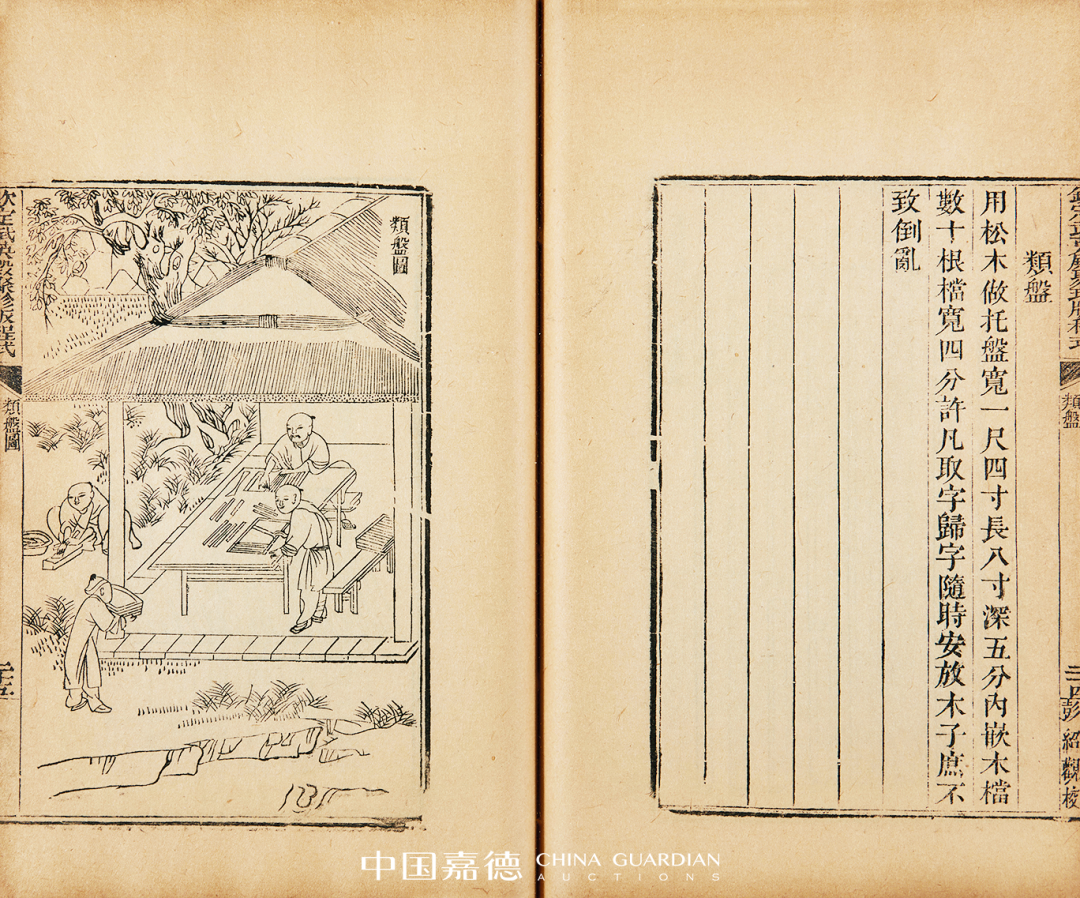 欽定武英殿聚珍版程式
類盤
二十四
彭紹觀校
類盤
用松木做托盤寬一尺四寸長八寸深五分內嵌木檔
數十根檔寬四分許凡取字歸字隨時安放木子庶不
致倒亂
類盤圖
欽定武英殿聚珍版程式
類盤圖
二十五
中国嘉德 CHINA GUARDIAN
AUCTIONS